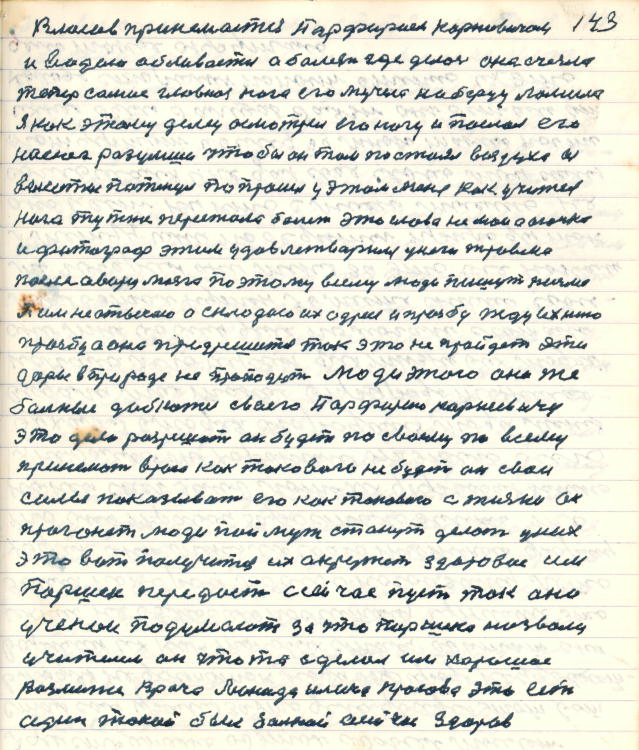 143
Власов принемается Парфирием Корновичом
и водою обливается а болезн где делас она счезла
тепер самое главное нога его мучит на беруу ломила
Я как этому делу осмотрел его ногу и послал его
на снег разумши что бы он там постоял воздуха с
высоты потянул попросил у этом меня как учителя
нога тут же перестала болет это слова не мои а
и фитограф этим удовлетварился у него
поэтому всему люди пишут писма
Я им не отвечаю а складою их адрес и прозбу жду их
прозбу а она придрешится так это не пройдет эти
дары в природе не пропадут люди этого они же
болные добюжи своего Парфирию карнеевичу
это дело разрешат он будит по своему по всему
принемат врага как такового не будит он свои
силы показыват его как такового с жизни он
прогонет люди поймут станут делат у них
это вот получится их окружет здоровие им
Паршек передаст сейчас пуст так оно
ученои подумают за что Паршека назвали
учителем он что то зделал им харошое
возмите врача Леонида илича Косова это ест
один такой был болной сейчас здоров